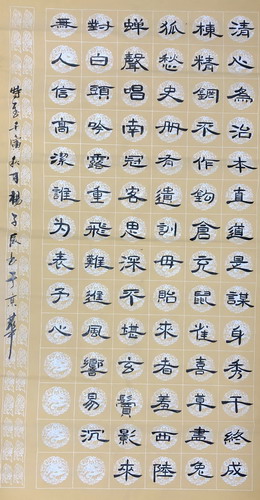 清心為治本直道是謀身秀干終成
棟精鋼不作鈎倉充鼠雀喜草盡兔
狐愁史册有遺訓毋貽來者羞西陸
蟬聲唱南冠客思深不堪玄鬢影來
對白頭吟露重飛難進風響易沉
無人信高潔誰为表予心
壬寅秋月楊子書于京華